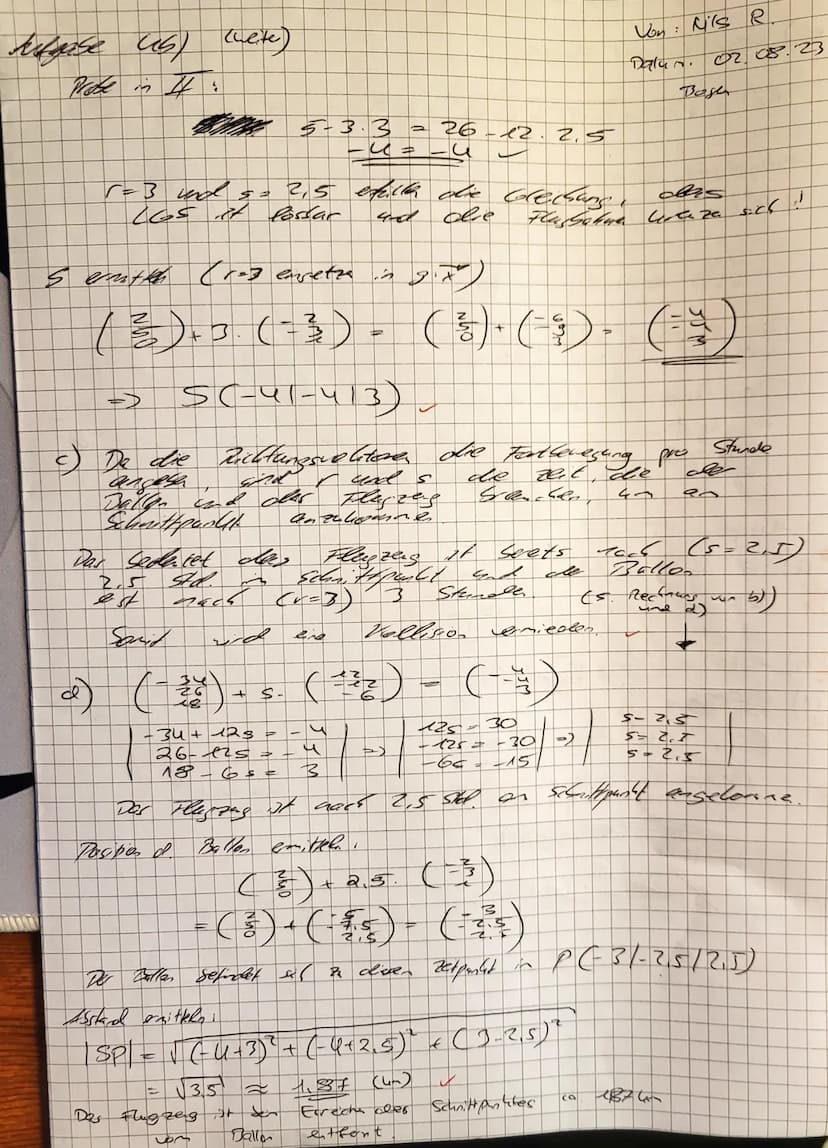 Aufgabe 4b) (weiter)
Von: Nils R.
Datum: 02.08.23
Probe in II:
5-3·3 = 26-12·2,5
-4 = -4 ✓
r=3 und s=2,5 erfüllen die Gleichung, das
LGS ist lösbar und die Flugbahnen kreuzen sich!
S ermitteln (r=3 einsetzen in g: x)
(2 5 0) + 3·(-2 -3 1) = (2 5 0) + (-6 -9 3) = (-4 -4 3)
=> S(-4|-4|3) ✓
c) Da die Richtungsvektoren die Fortbewegung pro Stunde
angeben, sind r und s die Zeit, die der
Ballon und das Flugzeug brauchen, um am
Schnittpunkt anzukommen.
Das bedeutet das Flugzeug ist bereits nach (s=2,5)
2,5 Std. im Schnittpunkt und der Ballon
erst nach (r=3) 3 Stunden. (s. Rechnung von b)
und d)
Somit wird eine Kollision vermieden. ✓
d) (-34 26 18) + s·(12 -12 -6) = (-4 -4 3)
|-34+12s = -4 | |12s = 30 | |s=2,5|
|26-12s = -4 | => |-12s = -30| => |s=2,5|
|18-6s = 3 | |-6s = -15| |s=2,5|
Das Flugzeug ist nach 2,5 Std. am Schnittpunkt angekommen.
Position d. Ballon ermitteln:
(2 5 0) + 2,5·(-2 -3 1)
= (2 5 0) + (-5 -7,5 2,5) = (-3 -2,5 2,5)
Der Ballon befindet sich zu diesem Zeitpunkt in P(-3|-2,5|2,5)
Abstand ermitteln:
|SP| = √(-4+3)² + (-4+2,5)² + (3-2,5)²
= √3,5 ≈ 1,87 (km) ✓
Das Flugzeug ist beim Erreichen des Schnittpunktes ca 1,87 km
vom Ballon entfernt.